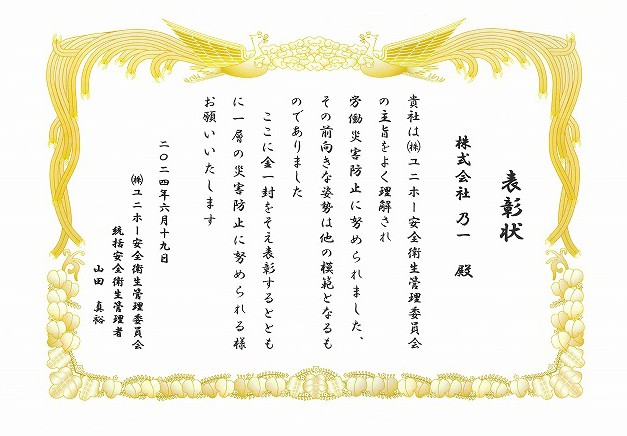 表彰状
株式会社 乃一 殿
貴社は㈱ユニホー安全衛生管理委員会
の主旨をよく理解され
労働災害防止に努められました、
その前向きな姿勢は他の模範となるも
のでありました
ここに金一封をそえ表彰するととも
に一層の災害防止に努められる様
お願いいたします
二〇二四年六月十九日
㈱ユニホー安全衛生管理委員会
統括安全衛生管理者
山田 真裕